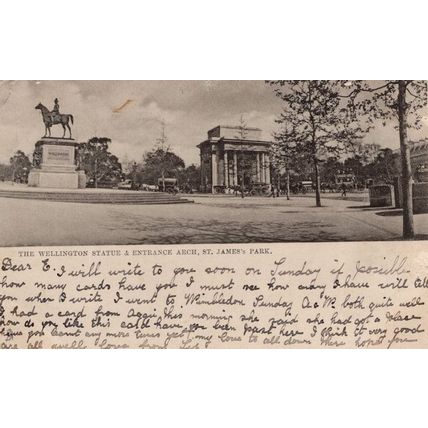 THE WELLINGTON STATUE & ENTRANCE ARCH, ST. JAMES'S PARK.
Dear E. I will write to you soon on Sunday if possible
how many cards have you I must see how many I have will tell
you when I write I went to Wimbledon Sunday A & W both quite well
I had a card from this morning she said she had got a place
how do you like this card have you been past here I think it very good
have you any more yet my love to all down there hope you
are all well love from